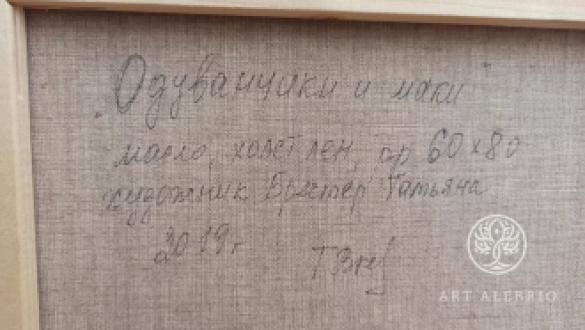 "Одуванчики и маки"
масло, холст лен, пр 60х80
художник Брестер Татьяна
2019г
ART ALEBRIO